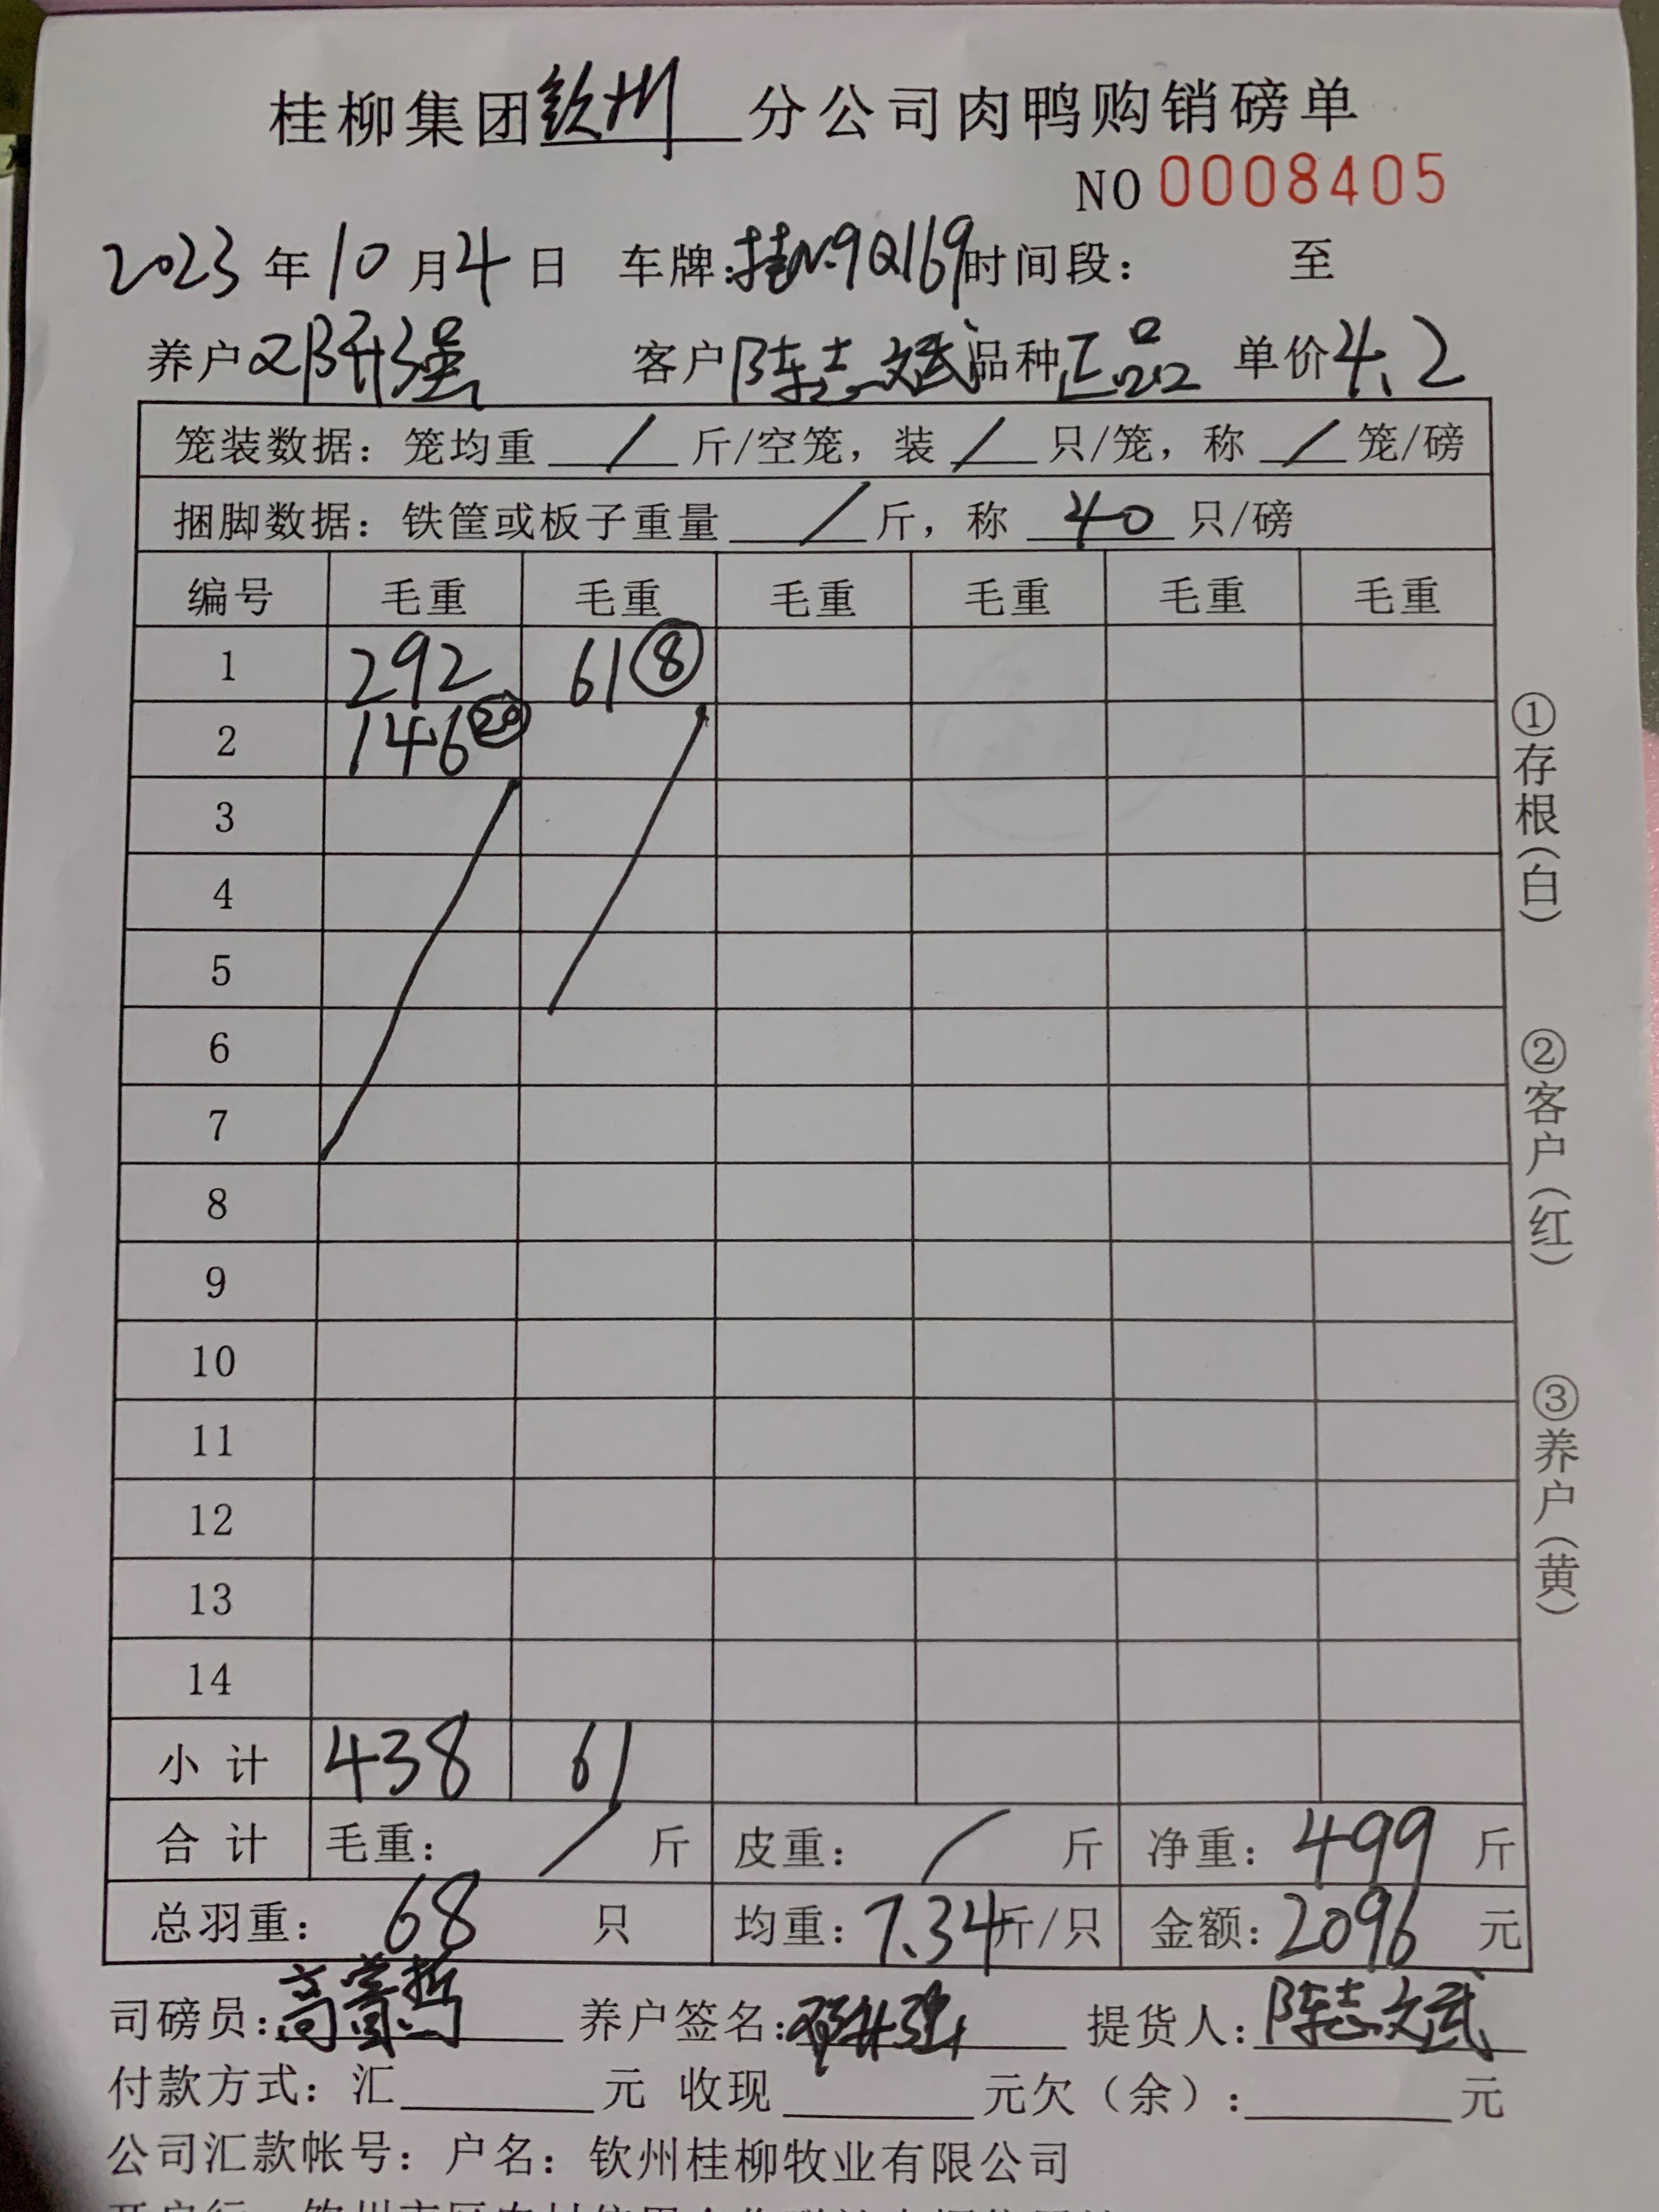 桂柳集团钦州分公司肉鸭购销磅单
NO 0008405
2023年10月4日 车牌:桂N·9Q169时间段: 至
养户邓升强 客户陈志斌品种正品 单价4.2
笼装数据:笼均重 / 斤/空笼,装 / 只/笼,称 / 笼/磅
捆脚数据:铁筐或板子重量 / 斤,称 40 只/磅
编号 毛重 毛重 毛重 毛重 毛重 毛重
1 292 61⑧
2 146⑳
3
4
5
6
7
8
9
10
11
12
13
14
小计 438 61
合计 毛重: / 斤 皮重: / 斤 净重:499斤
总羽重:68只 均重:7.34斤/只 金额:2096元
司磅员: 养户签名:邓升强 提货人:陈志斌
付款方式:汇 元 收现 元欠(余): 元
公司汇款帐号:户名:钦州桂柳牧业有限公司
①存根(白)
②客户(红)
③养户(黄)